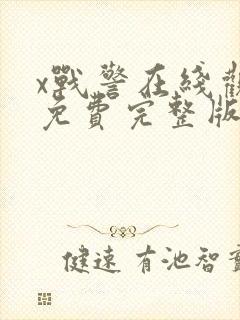 x戰警在綫觀
免費完整版
健速 有池智